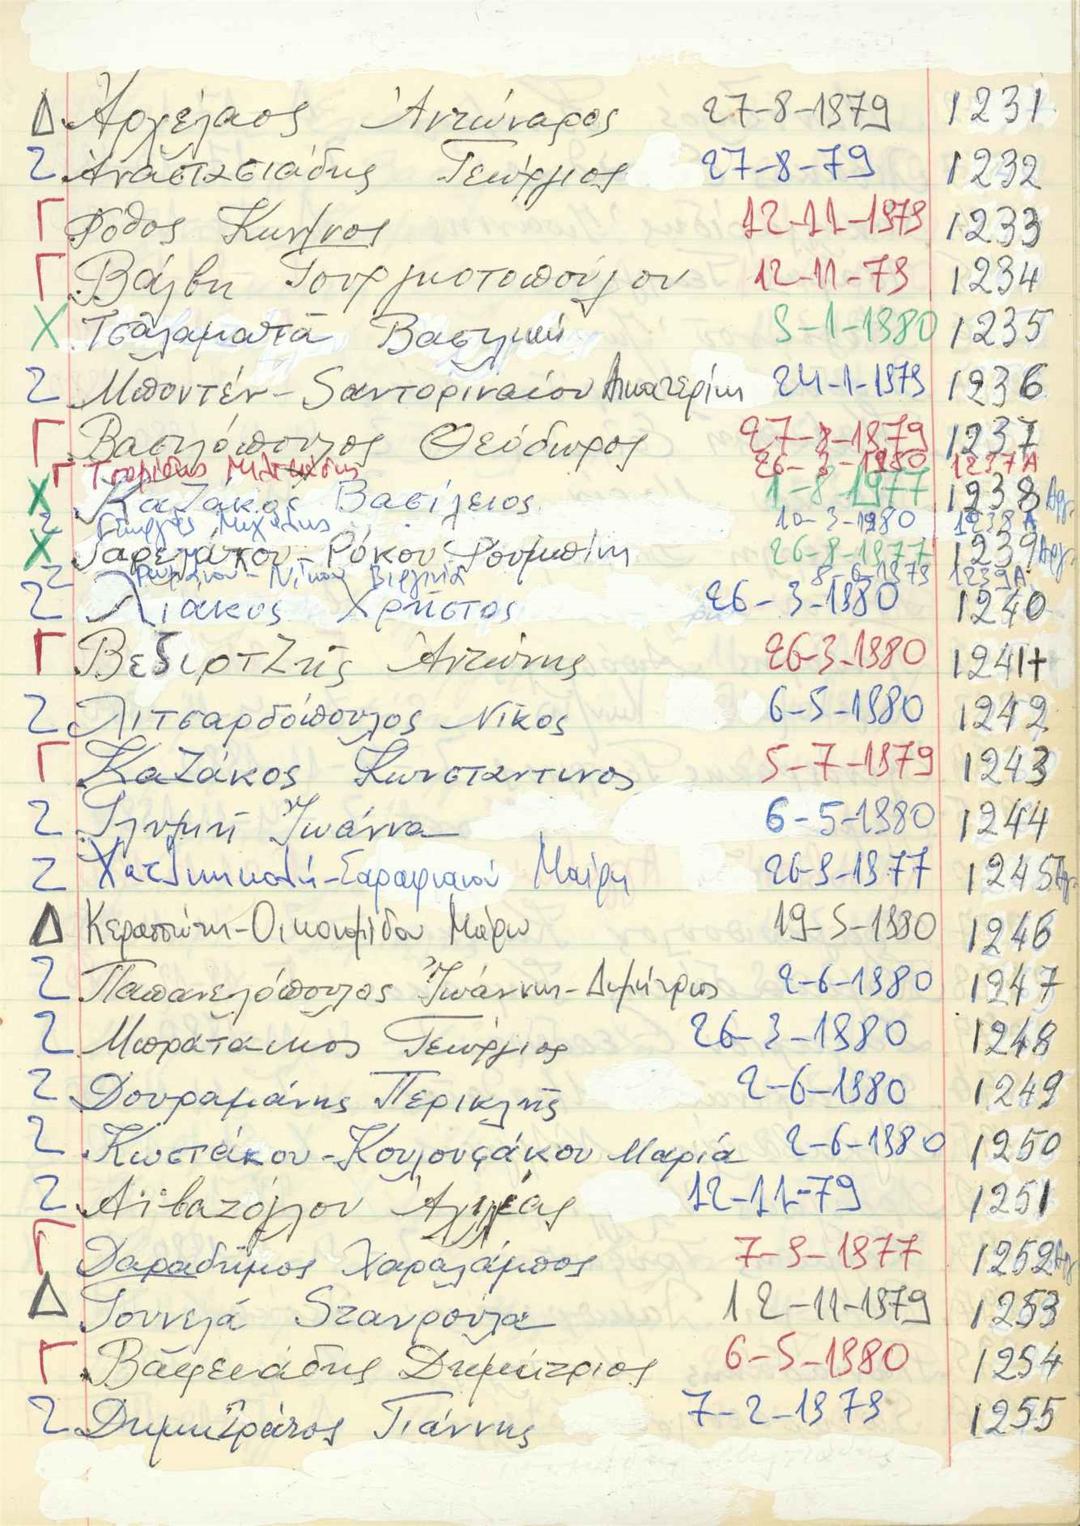 Δ Ἀρχέλαος Ἀντώναρος 27-8-1979 1231
Σ Ἀναστασιάδης Γεώργιος 27-8-79 1232
Γ Φόθος Κων/νος 12-11-1979 1233
Γ Βάλβη 12-11-79 1234
Χ Τσαλαματᾶ Βασιλική 9-1-1980 1235
Σ Μποντέν-Σαντοριναίου Αικατερίνη 24-1-1979 1236
Γ Βασιλόπουλος Θεόδωρος 27-8-1979 1237
Γ 26-3-1980 1237 Α
Χ Καζάκος Βασίλειος 1-8-1977 1938 Αρχ.
Σ Γεωργᾶς Μιχάλης 10-3-1980 1238 Α
Χ Γαρελάκου-Ρόκου Ρουμπίνη 26-8-1977 1239 Αρχ.
Σ Νίκου Βιργινία 8-6-1979 1239Α
Σ Λιάκος Χρῆστος 26-3-1980 1240
Γ Βεζιρτζῆς Ἀντώνης 26-3-1980 1241+
Σ Λιτσαρδόπουλος Νῖκος 6-5-1980 1242
Γ Καζάκος Κωνσταντινος 5-7-1979 1243
Σ Γλυμῆ Ἰωάννα 6-5-1980 1244
Σ Χατζηνικολή-Σαραφιανού Μαίρη 26-9-1977 1245
Δ Κεραπώτη-Οικονομίδου Μάρω 19-5-1980 1246
Σ Παπανελόπουλος Ἰωάννης-Δημήτριος 2-6-1980 1247
Σ Μπρατάκος Γεώργιος 26-3-1980 1248
Σ Δουραμάνης Περικλῆς 2-6-1980 1249
Σ Κωστάκου-Κουλουφάκου Μαρία 2-6-1980 1250
Σ Αϊβαζόγλου Ἀχιλλέας 12-11-79 1251
Γ Δαραδῆμος Χαραλάμπος 7-9-1977 1252
Δ Γουνελᾶ Σταυρούλα 12-11-1979 1253
Γ Βαφειάδης Δημήτριος 6-5-1980 1254
Σ Δημητρᾶτος Γιάννης 7-2-1979 1255